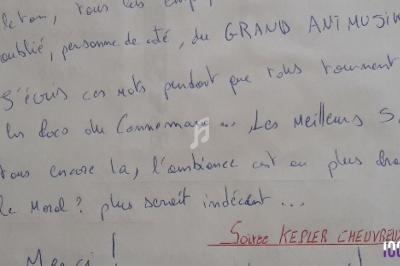 tous les
oublié, personne de côté, du GRAND ANIMUSIK
J'écris ces mots pendant que tous tournent
les lacs du Connemara ..., Les meilleurs S
tous encore là, l'ambiance est au plus
le Moral ? plus serait indécent ...
Soirée KEPLER CHEUVREUX
Merci !
100